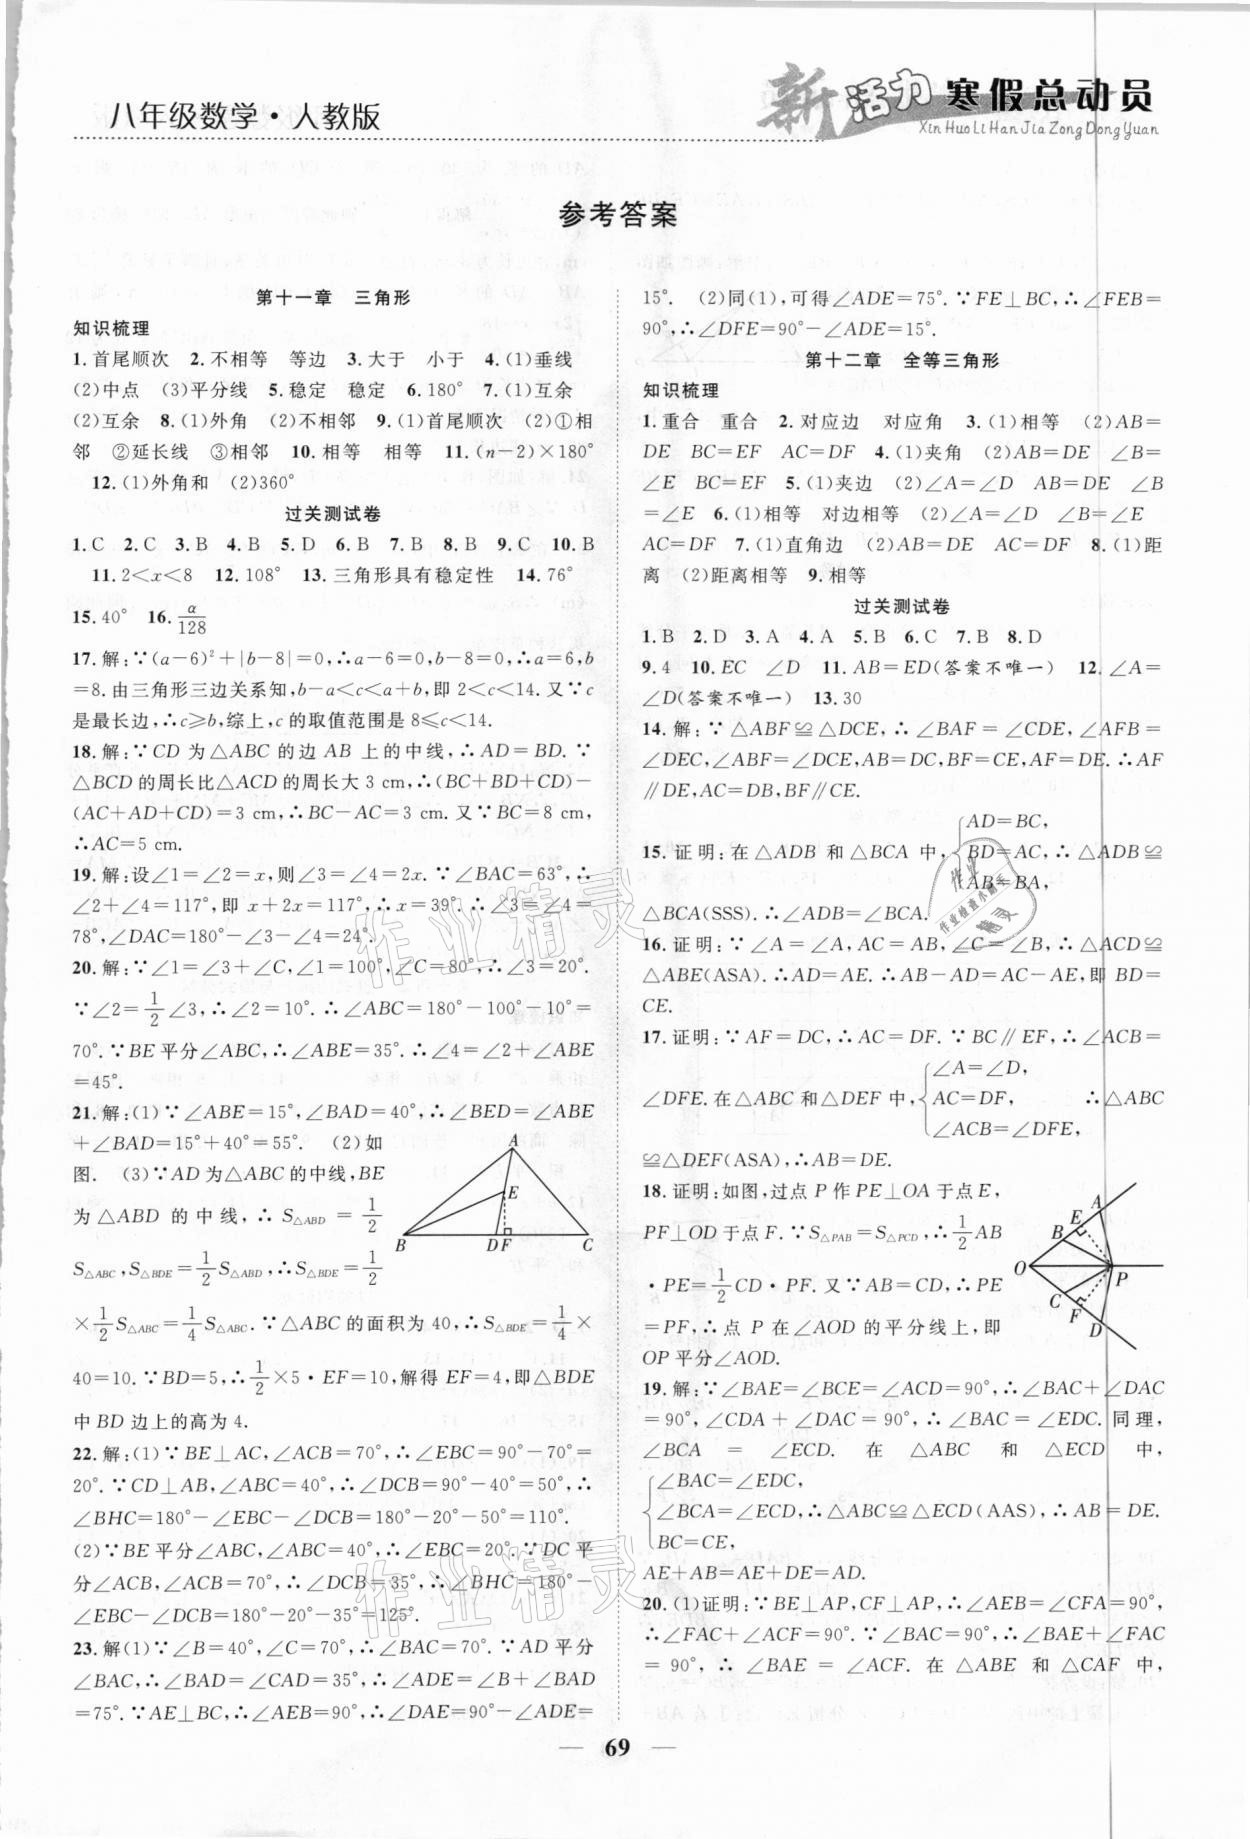 八年级数学·人教版
新活力寒假总动员
Xin Huo Li Han Jia Zong Dong Yuan
参考答案
第十一章　三角形
知识梳理
1.首尾顺次　2.不相等　等边　3.大于　小于　4.(1)垂线
(2)中点　(3)平分线　5.稳定　稳定　6.180°　7.(1)互余
(2)互余　8.(1)外角　(2)不相邻　9.(1)首尾顺次　(2)①相
邻　②延长线　③相邻　10.相等　相等　11.(n-2)×180°
12.(1)外角和　(2)360°
过关测试卷
1.C　2.C　3.B　4.B　5.D　6.B　7.B　8.B　9.C　10.B
11.2<x<8　12.108°　13.三角形具有稳定性　14.76°
15.40°　16.α/128
17.解:∵(a-6)²+|b-8|=0,∴a-6=0,b-8=0,∴a=6,b
=8.由三角形三边关系知,b-a<c<a+b,即2<c<14.又∵c
是最长边,∴c≥b,综上,c的取值范围是8≤c<14.
18.解:∵CD为△ABC的边AB上的中线,∴AD=BD.∵
△BCD的周长比△ACD的周长大3 cm,∴(BC+BD+CD)-
(AC+AD+CD)=3 cm,∴BC-AC=3 cm.又∵BC=8 cm,
∴AC=5 cm.
19.解:设∠1=∠2=x,则∠3=∠4=2x.∵∠BAC=63°,∴
∠2+∠4=117°,即x+2x=117°,∴x=39°.∴∠3=∠4=
78°,∠DAC=180°-∠3-∠4=24°.
20.解:∵∠1=∠3+∠C,∠1=100°,∠C=80°,∴∠3=20°.
∵∠2=1/2∠3,∴∠2=10°.∴∠ABC=180°-100°-10°=
70°.∵BE平分∠ABC,∴∠ABE=35°.∴∠4=∠2+∠ABE
=45°.
21.解:(1)∵∠ABE=15°,∠BAD=40°,∴∠BED=∠ABE
+∠BAD=15°+40°=55°.　(2)如
图.　(3)∵AD为△ABC的中线,BE
为△ABD的中线,∴S△ABD=1/2
S△ABC,S△BDE=1/2S△ABD,∴S△BDE=1/2
×1/2S△ABC=1/4S△ABC.∵△ABC的面积为40,∴S△BDE=1/4×
40=10.∵BD=5,∴1/2×5·EF=10,解得EF=4,即△BDE
中BD边上的高为4.
A
E
B
D F
C
22.解:(1)∵BE⊥AC,∠ACB=70°,∴∠EBC=90°-70°=
20°.∵CD⊥AB,∠ABC=40°,∴∠DCB=90°-40°=50°,∴
∠BHC=180°-∠EBC-∠DCB=180°-20°-50°=110°.
(2)∵BE平分∠ABC,∠ABC=40°,∴∠EBC=20°.∵DC平
分∠ACB,∠ACB=70°,∴∠DCB=35°,∴∠BHC=180°-
∠EBC-∠DCB=180°-20°-35°=125°.
23.解(1)∵∠B=40°,∠C=70°,∴∠BAC=70°.∵AD平分
∠BAC,∴∠BAD=∠CAD=35°,∴∠ADE=∠B+∠BAD
=75°.∵AE⊥BC,∴∠AEB=90°,∴∠DAE=90°-∠ADE=
15°.　(2)同(1),可得∠ADE=75°.∵FE⊥BC,∴∠FEB=
90°,∴∠DFE=90°-∠ADE=15°.
第十二章　全等三角形
知识梳理
1.重合　重合　2.对应边　对应角　3.(1)相等　(2)AB=
DE　BC=EF　AC=DF　4.(1)夹角　(2)AB=DE　∠B=
∠E　BC=EF　5.(1)夹边　(2)∠A=∠D　AB=DE　∠B
=∠E　6.(1)相等　对边相等　(2)∠A=∠D　∠B=∠E
AC=DF　7.(1)直角边　(2)AB=DE　AC=DF　8.(1)距
离　(2)距离相等　9.相等
过关测试卷
1.B　2.D　3.A　4.A　5.B　6.C　7.B　8.D
9.4　10.EC　∠D　11.AB=ED(答案不唯一)　12.∠A=
∠D(答案不唯一)　13.30
14.解:∵△ABF≌△DCE,∴∠BAF=∠CDE,∠AFB=
∠DEC,∠ABF=∠DCE,AB=DC,BF=CE,AF=DE.∴AF
∥DE,AC=DB,BF∥CE.
15.证明:在△ADB和△BCA中,{AD=BC,
BD=AC,∴△ADB≌
AB=BA,
△BCA(SSS).∴∠ADB=∠BCA.
16.证明:∵∠A=∠A,AC=AB,∠C=∠B,∴△ACD≌
△ABE(ASA).∴AD=AE.∴AB-AD=AC-AE,即BD=
CE.
17.证明:∵AF=DC,∴AC=DF.∵BC∥EF,∴∠ACB=
∠DFE.在△ABC和△DEF中,{∠A=∠D,
AC=DF,　∴△ABC
∠ACB=∠DFE,
≌△DEF(ASA),∴AB=DE.
18.证明:如图,过点P作PE⊥OA于点E,
PF⊥OD于点F.∵S△PAB=S△PCD,∴1/2AB
·PE=1/2CD·PF.又∵AB=CD,∴PE
=PF,∴点P在∠AOD的平分线上,即
OP平分∠AOD.
A
E
B
O
P
C
F
D
19.解:∵∠BAE=∠BCE=∠ACD=90°,∴∠BAC+∠DAC
=90°,∠CDA+∠DAC=90°,∴∠BAC=∠EDC.同理,
∠BCA=∠ECD.在△ABC和△ECD中,
{∠BAC=∠EDC,
∠BCA=∠ECD,∴△ABC≌△ECD(AAS),∴AB=DE.
BC=CE,
AE+AB=AE+DE=AD.
20.(1)证明:∵BE⊥AP,CF⊥AP,∴∠AEB=∠CFA=90°,
∴∠FAC+∠ACF=90°.∵∠BAC=90°,∴∠BAE+∠FAC
=90°,∴∠BAE=∠ACF.在△ABE和△CAF中,
— 69 —
作业精灵
作业精灵